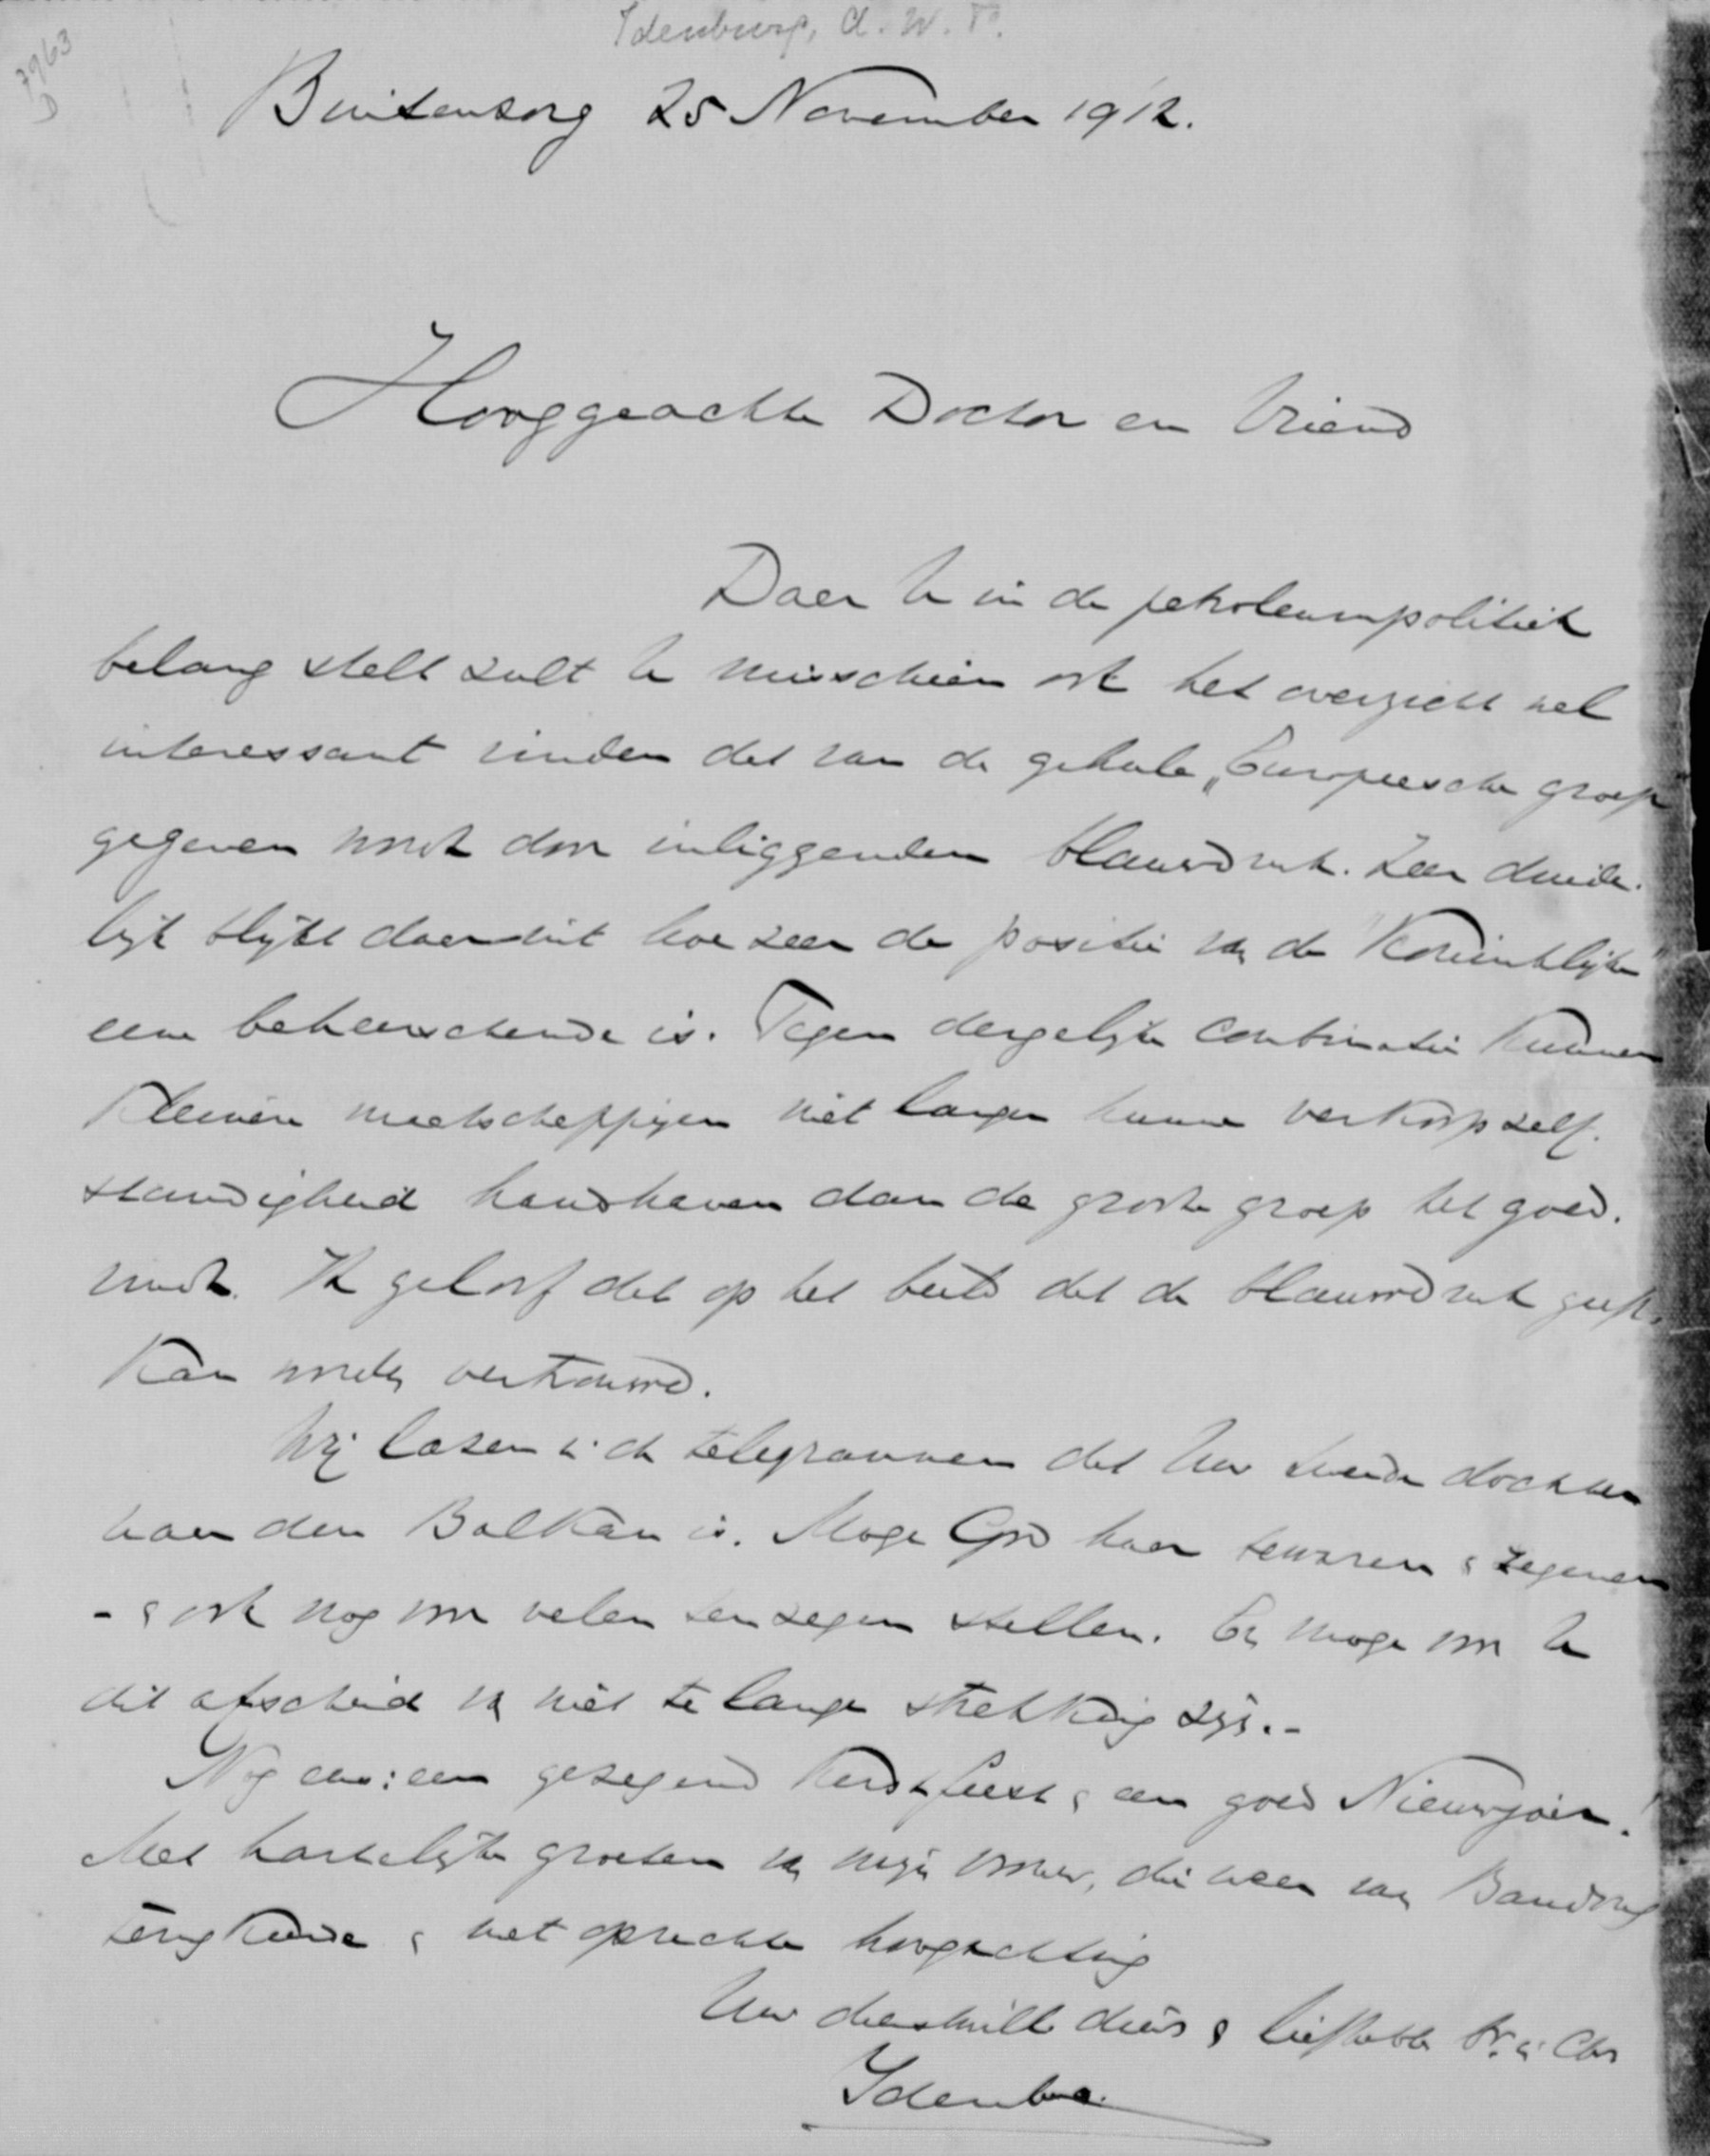 Idenburg, A.W.F.
7963
D
Buitenzorg 25 November 1912.
Hooggeachte Doctor en Vriend
Daar U in de petroleumpolitiek
belang stelt zult U misschien ook het overzicht wel
interessant vinden dat van de geheele „Europeesche groep"
gegeven wordt door inliggenden blauwdruk. Zeer duide-
lijk blijkt daaruit hoezeer de positie van de "Koninklijke"
eene beheerschende is. Tegen dergelijke combinatie kunnen
kleinere maatschappijen niet langer hunne verkoopzelf-
standigheid handhaven dan de groote groep het goed-
vindt. Ik geloof dat op het beeld dat de blauwdruk geeft,
kan worden vertrouwd.
Wij lazen in de telegrammen dat Uw tweede dochter
naar den Balkan is. Moge God haar bewaren & zegenen
- & ook nog voor velen ten zegen stellen. En moge voor U
dit afscheid van niet te lange strekking zijn.-
Nog eens: een gezegend Kerstfeest & een goed Nieuwjaar!
Met hartelijke groeten van mijn vrouw, die weer van Bandoeng
terugkeerde & met oprechte hoogachting
Uw dienstwill. dienr & liefhebb. br. in Chr
Idenburg